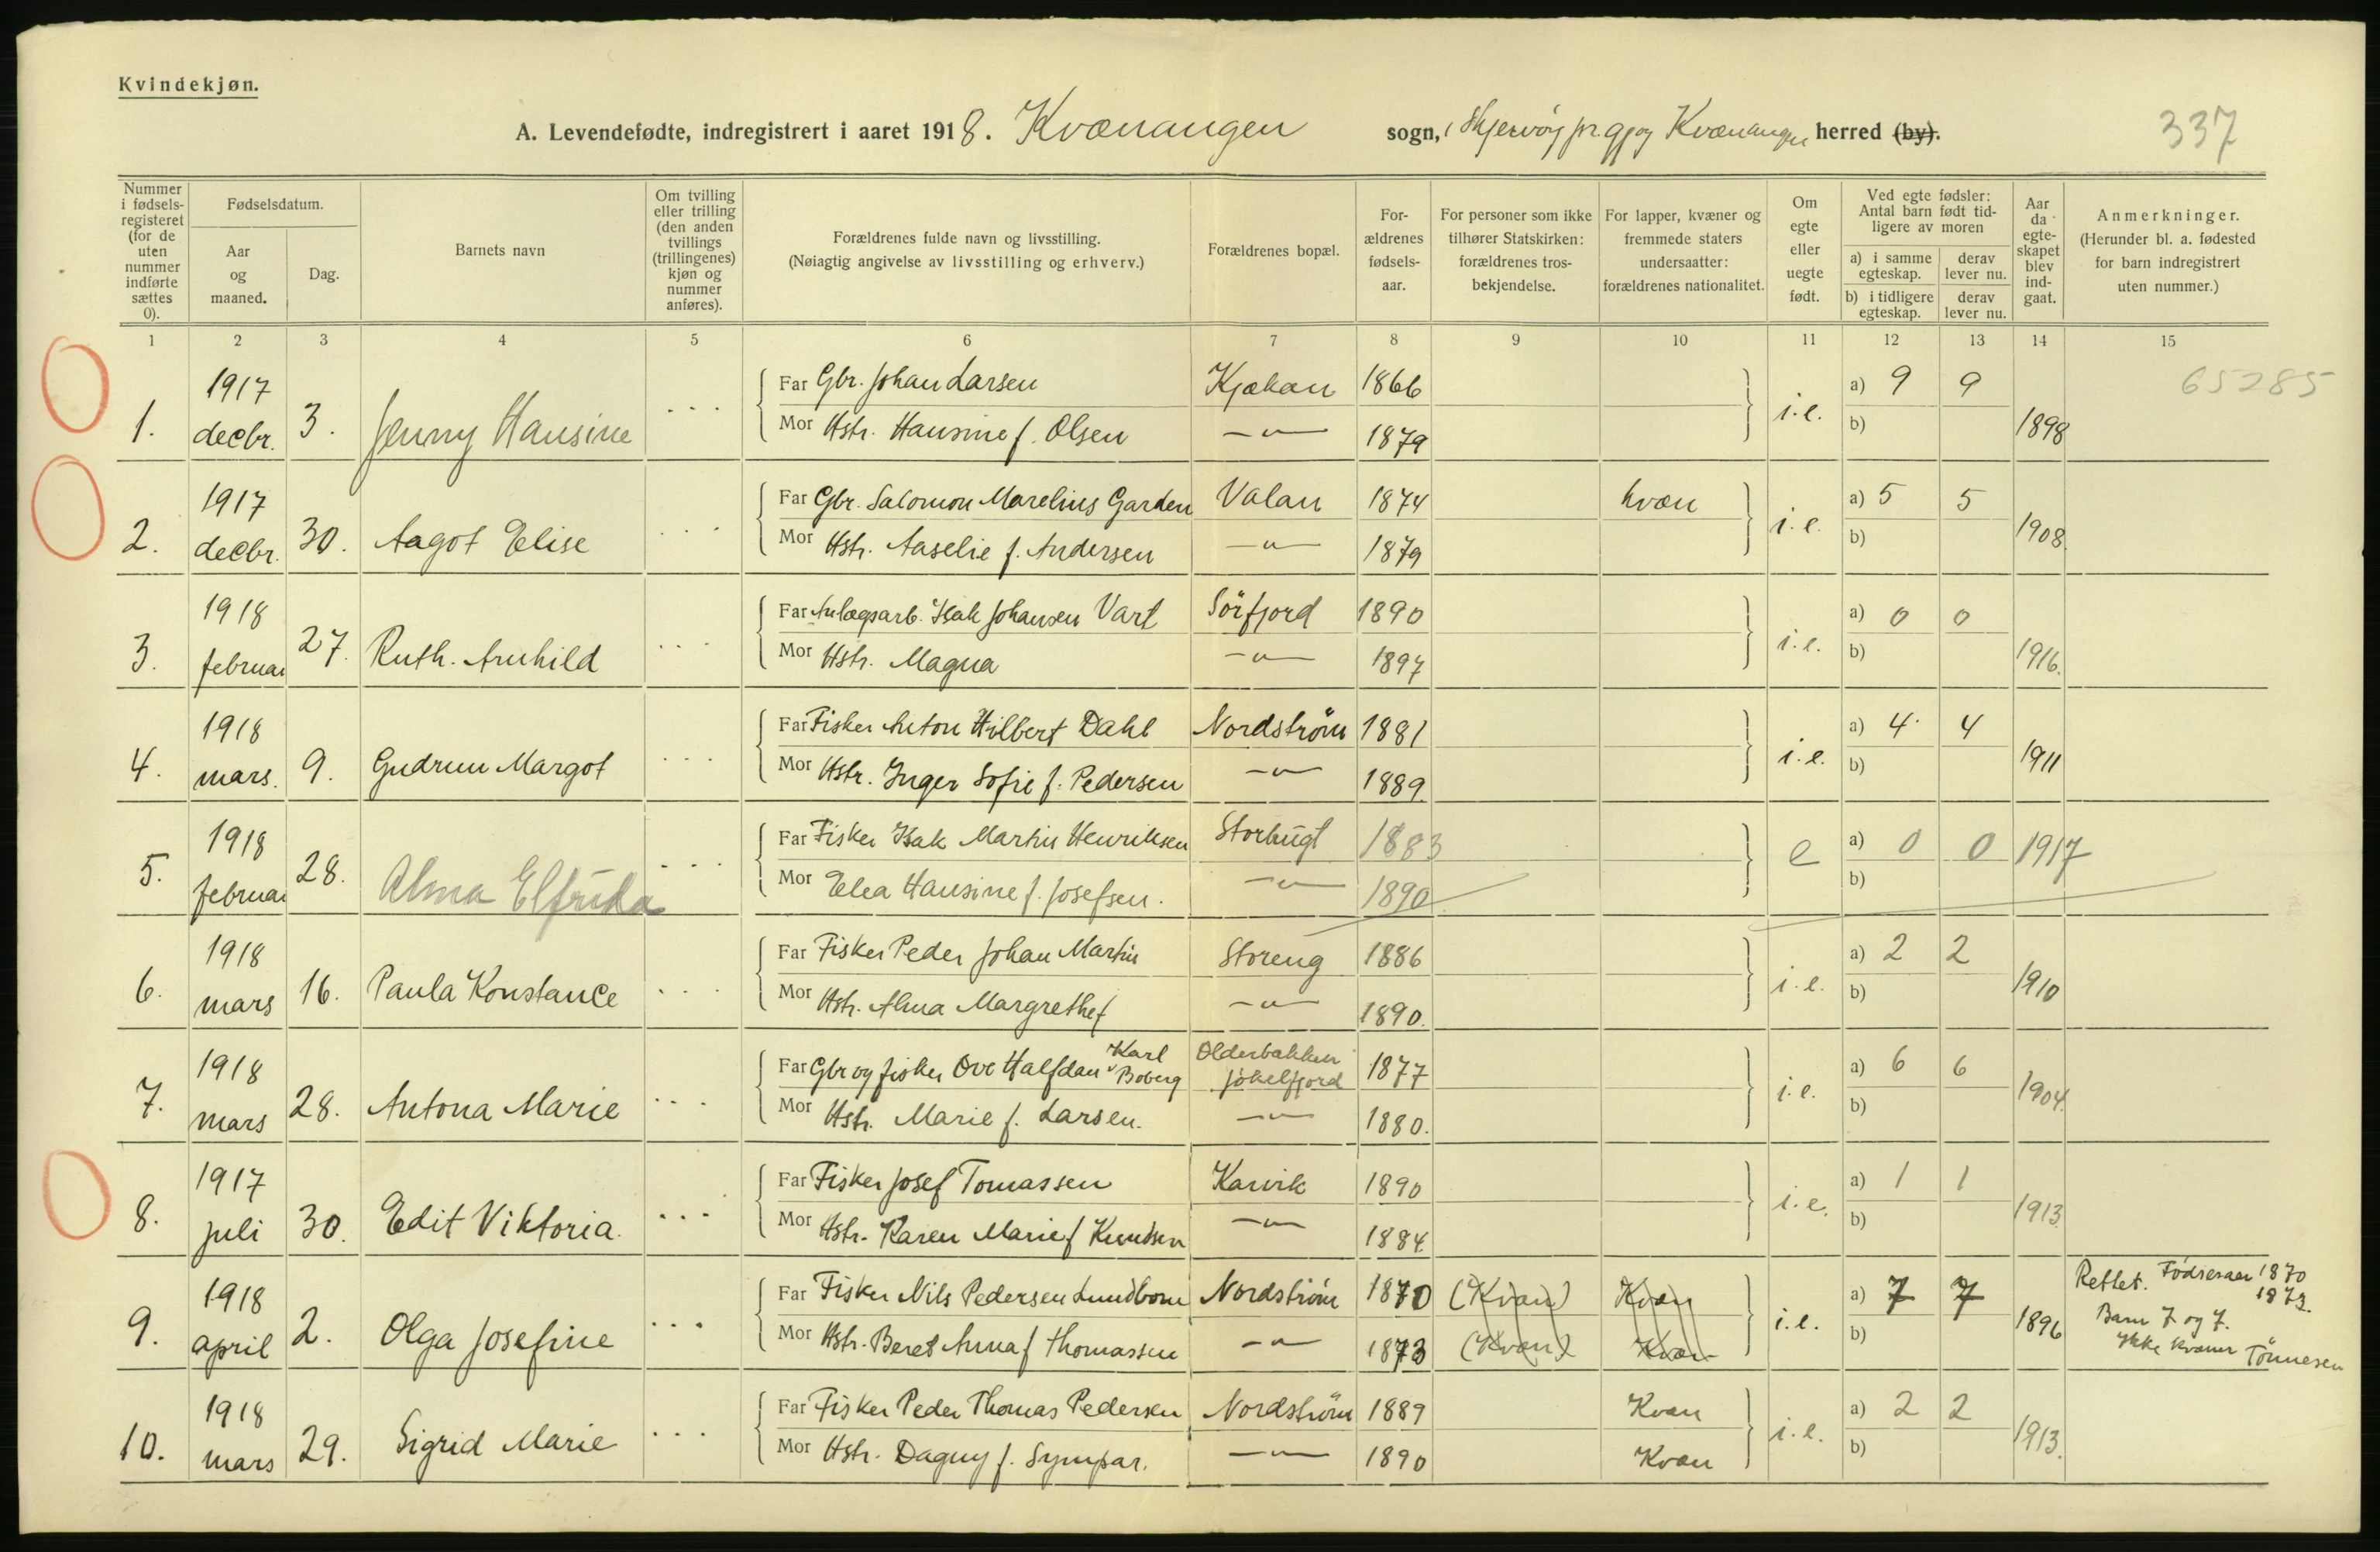 Kvindekjøn.
A. Levendefødte, indregistrert i aaret 1918. Kvænangen sogn, i Skjervøy pr.gj og Kvænangen herred (by).
337
Nummer i fødsels-registeret (for de uten nummer indførte sættes 0).
Fødselsdatum.
Aar og maaned.
Dag.
Barnets navn
Om tvilling eller trilling (den anden tvillings (trillingenes) kjøn og nummer anføres).
Forældrenes fulde navn og livsstilling.
(Nøiagtig angivelse av livsstilling og erhverv.)
Forældrenes bopæl.
For-ældrenes fødsels-aar.
For personer som ikke tilhører Statskirken: forældrenes tros-bekjendelse.
For lapper, kvæner og fremmede staters undersaatter: forældrenes nationalitet.
Om egte eller uegte født.
Ved egte fødsler: Antal barn født tid-ligere av moren
a) i samme egteskap.
derav lever nu.
b) i tidligere egteskap.
derav lever nu.
Aar da egte-skapet blev ind-gaat.
Anmerkninger.
(Herunder bl. a. fødested for barn indregistrert uten nummer.)
1 2 3 4 5 6 7 8 9 10 11 12 13 14 15
65285
1. 1917 decbr. 3. Jenny Hansine - - -
Far Gbr. Johan Larsen Kjækan 1866 i.e. a) 9 9
Mor Hstr. Hansine f. Olsen —"— 1879 b) 1898
2. 1917 decbr. 30. Aagot Elise - - -
Far Gbr. Salomon Marelius Garden Valan 1874 kvæn i.e. a) 5 5
Mor Hstr. Aaselie f. Andersen —"— 1879 b) 1908
3. 1918 februar 27. Ruth. Arnhild - - -
Far Anlægsarb. Isak Johansen Vart Sörfjord 1890 i.e. a) 0 0
Mor Hstr. Magna —"— 1897 b) 1916.
4. 1918 mars. 9. Gudrun Margot - - -
Far Fisker Anton Hilbert Dahl Nordström 1881 i.e. a) 4 4
Mor Hstr. Inger Sofie f. Pedersen —"— 1889 b) 1911
5. 1918 februar 28. Alma Elfrida - - -
Far Fisker Isak Martin Henriksen Storbugt 1883 e a) 0 0 1917
Mor Elea Hansine f. Josefsen. —"— 1890 b)
6. 1918 mars 16. Paula Konstance - - -
Far Fisker Peder Johan Martin Storeng 1886 i.e. a) 2 2
Mor Hstr. Alma Margrethe f —"— 1890. b) 1910
7. 1918 mars 28. Antona Marie - - -
Far Gbr og fisker Ove Halfdan Karl Boberg Olderbakken Jökelfjord 1877 i.e. a) 6 6
Mor Hstr. Marie f. Larsen. —"— 1880. b) 1904.
8. 1917 juli 30. Edit Viktoria. - - -
Far Fisker Josef Tomassen Karvik 1890 i.e. a) 1 1
Mor Hstr. Karen Marie f Knudsen —"— 1884 b) 1913
9. 1918 april 2. Olga Josefine - - -
Far Fisker Nils Pedersen Lundbom Nordström 1870 (Kvæn) Kvæn i.e. a) 7 7
Mor Hstr. Beret Anna f Thomassen —"— 1873 (Kvæn) Kvæn b) 1896
Rettet. Födselsaar 1870
1873.
Barn 7 og 7.
Ikke kvæner Tönnesen
10. 1918 mars 29. Sigrid Marie - - -
Far Fisker Peder Thomas Pedersen Nordström 1889 Kvæn i.e. a) 2 2
Mor Hstr. Dagny f. Sympar. —"— 1890 Kvæn b) 1913.